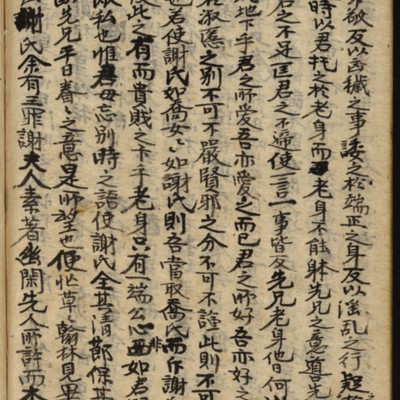 敬反以凶穢之事諉之於端正之身反以淫乱之行疑
時以君托之於老身而老身不能躰先兄之意導先
君之不足匡君之不逮使一言一事皆反先兄老身他日何
地下乎君之所愛吾亦愛之而已君之所好吾亦好之
淑慝之別不可不嚴賢邪之分不可不謹此則不可
也若使謝氏如喬女々々如謝氏則吾當取喬氏而斥謝
此之有而貴賤之卞乎老身只有一端公心非如君
敢私也惟君毋忘別時之語使謝氏全其清節保其
先兄平日眷々之意是所望也使忙草草翰林見畢
謝氏余有三罪謝夫人素著幽閑先人所許而未